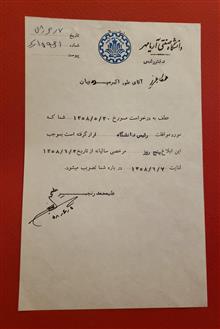 دانشگاه صنعتی آریامهر
تاریخ
شماره
پیوست
همکار عزیز
آقای علی اکبر
عطف به درخواست مورخ ۱۳۵۸/۵/۳۰ شما که
مورد موافقت رئیس دانشگاه قرار گرفته است بموجب
این ابلاغ پنج روز مرخصی سالیانه از تاریخ ۱۳۵۸/۶/۳
لغایت ۱۳۵۸/۶/۷ در باره شما تصویب میشود.
علیمحمد رنجبر